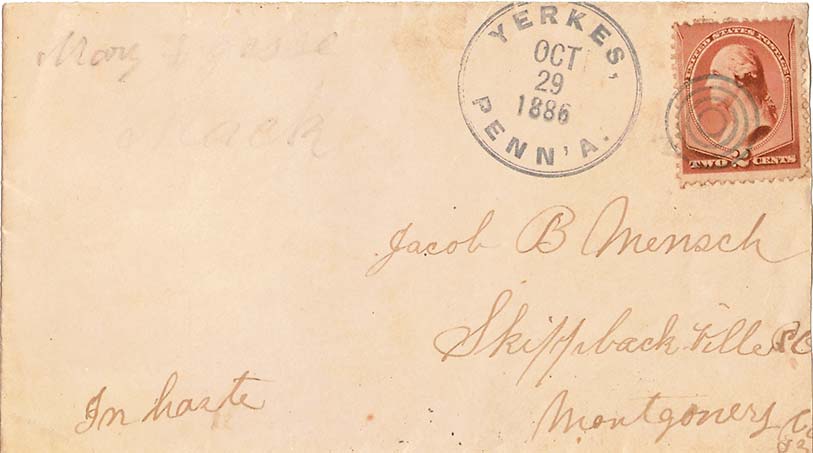 YERKES,
OCT
29
1886
PENN'A.
UNITED STATES POSTAGE
TWO 2 CENTS
Mary
Mack
Jacob B Mensch
Skippback ville P.O
Montgomery Co
In haste